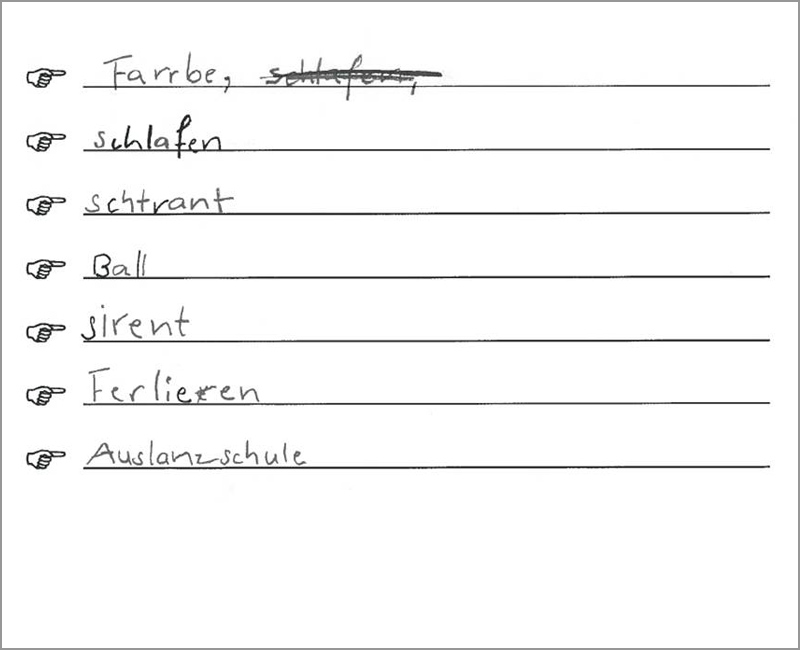 Farrbe, schlafen,
schlafen
schtrant
Ball
sirent
Ferlieren
Auslanzschule